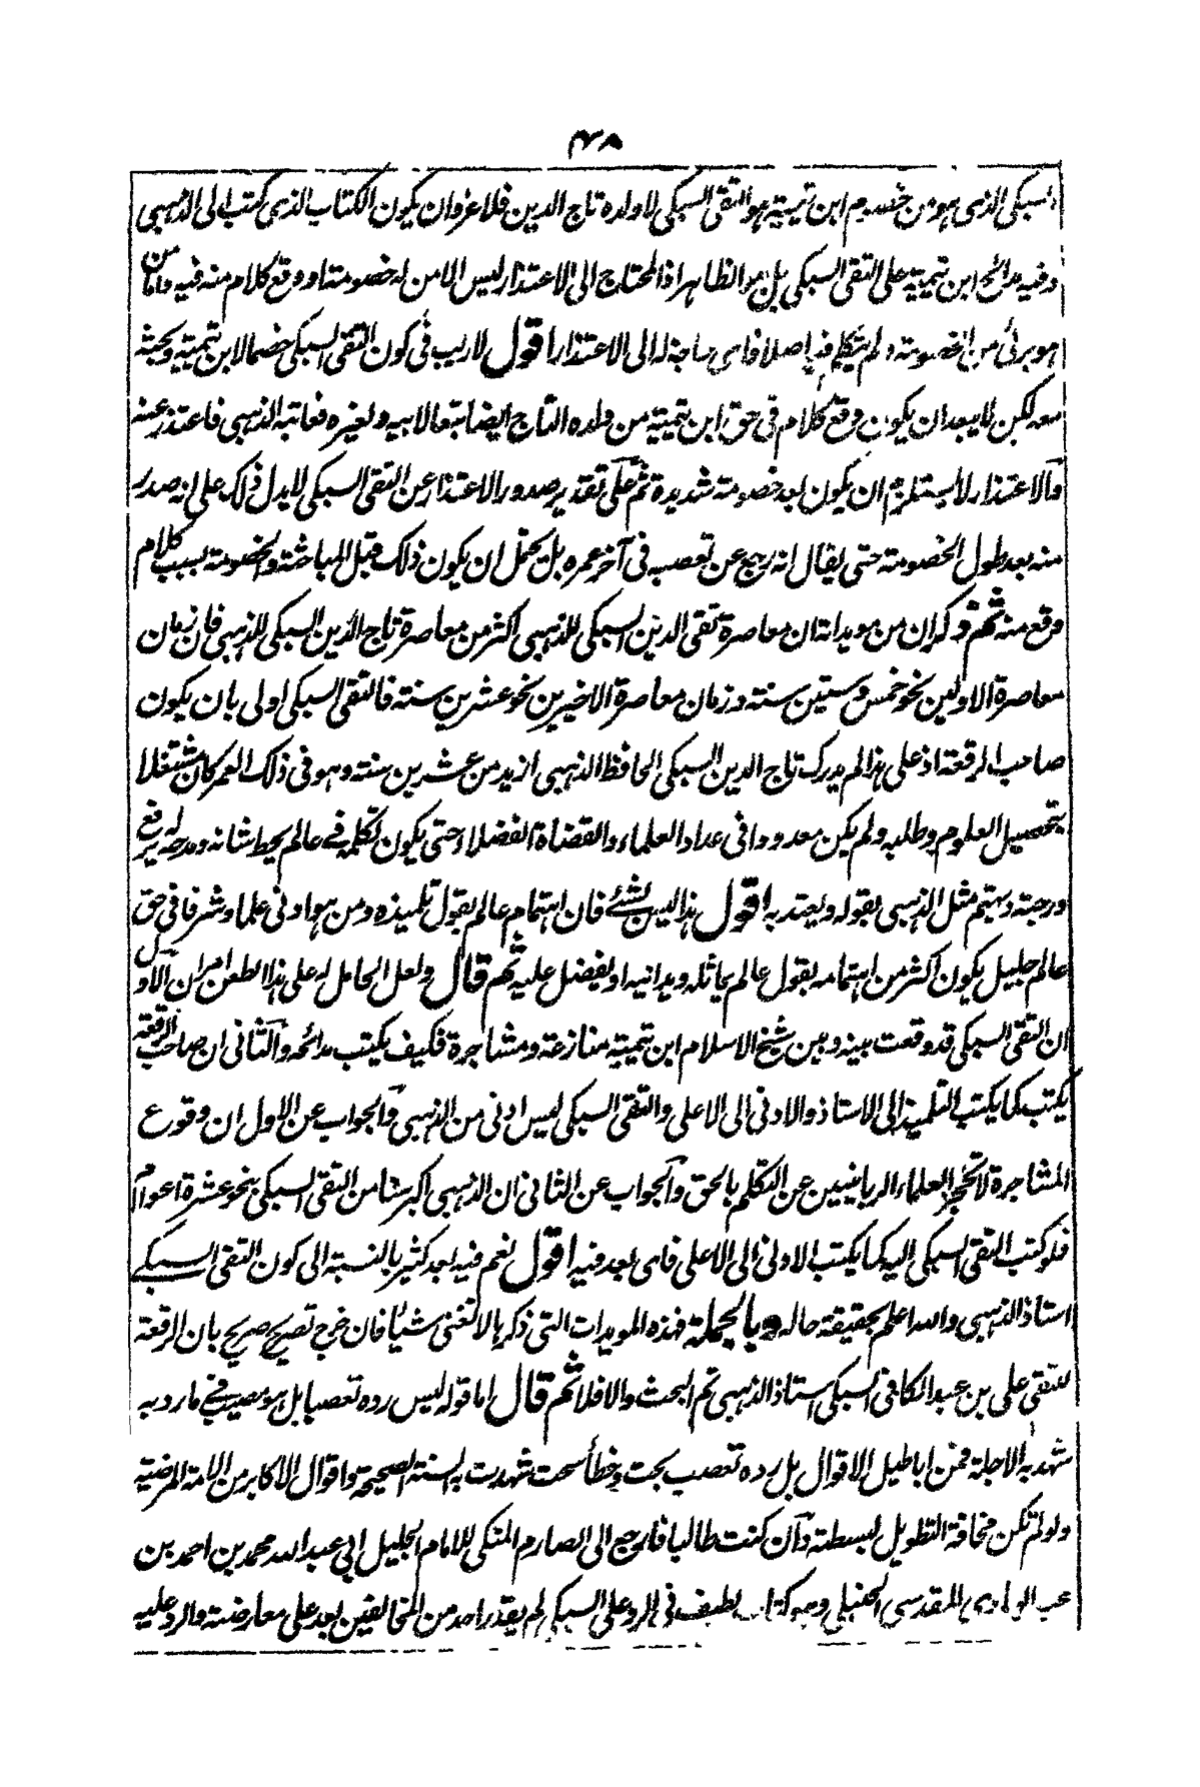 ٣٨
السبكى الذى هو من خصوم ابن تيمية هو التقى السبكى لا ولده تاج الدين فلا غرو ان يكون الكتاب الذى كتب الى الذهبى
وفيه مدائح ابن تيمية على التقى السبكى بل هو الظاهر اذ المحتاج الى الاعتذار ليس الا من له خصومة او وقع كلام منه فيه واما من
هو برئ من الخصومة ولم يتكلم فيه اصلا فاى حاجة له الى الاعتذار اقول لا ريب فى كون التقى السبكى خصما لابن تيمية وبحثه
معه لكن لا يبعد ان يكون وقع كلام فى حق ابن تيمية من ولده التاج ايضا تبعا لابيه ولغيره فعاتبه الذهبى فاعتذر عنه
والاعتذار لا يستلزم ان يكون بعد خصومة شديدة ثم على تقدير صدور الاعتذار عن التقى السبكى لا يدل ذلك على انه صدر
منه بعد طول الخصومة حتى يقال انه رجع عن تعصبه فى آخر عمره بل يحتمل ان يكون ذلك قبل المباحثة والخصومة بسبب كلام
وقع منه ثم ذكر ان من مويداته ان معاصرة تقى الدين السبكى للذهبى اكثر من معاصرة تاج الدين السبكى للذهبى فان زمان
معاصرة الاولين نحو خمس وستين سنة وزمان معاصرة الاخيرين نحو عشرين سنة فالتقى السبكى اولى بان يكون
صاحب الرقعة اذ على هذا لم يدرك تاج الدين السبكى الحافظ الذهبى ازيد من عشرين سنة وهو فى ذلك العمر كان مشتغلا
بتحصيل العلوم وطلبه ولم يكن معدودا فى عداد العلماء والقضاة الفضلاء حتى يكون تكلمه فى عالم يحط شانه ومدحه له يرفع
درجته ويهتم مثل الذهبى بقوله ويعتد به اقول هذا ليس بشئ فان اهتمام عالم بقول تلميذه ومن هو ادنى علما وشرفا فى حق
عالم جليل يكون اكثر من اهتمامه بقول عالم يماثله ويدانيه او يفضل عليه ثم قال ولعل الحامل له على هذا الطعن امران الاول
ان التقى السبكى قد وقعت بينه وبين شيخ الاسلام ابن تيمية منازعة ومشاجرة فكيف يكتب مدائحه والثانى ان صاحب الرقعة
يكتب كما يكتب التلميذ الى الاستاذ والادنى الى الاعلى والتقى السبكى ليس ادنى من الذهبى والجواب عن الاول ان وقوع
المشاجرة لا تحجز العلماء الربانيين عن التكلم بالحق والجواب عن الثانى ان الذهبى اكبر سنا من التقى السبكى بنحو عشرة اعوام
فلو كتب التقى السبكى اليه كما يكتب الادنى الى الاعلى فاى بعد فيه اقول نعم فيه بعد كثير بالنسبة الى كون التقى السبكى
استاذ الذهبى والله اعلم بحقيقة حاله وبالجملة فهذه المويدات التى ذكرها لا تغنى شيئا فان خرج تصريح صريح بان الرقعة
للتقى على بن عبد الكافى السبكى استاذ الذهبى تم البحث والا فلا ثم قال اما قوله ليس رده تعصبا بل هو مصيب فى ما رد به
شهد به الاجلة فمن اباطيل الاقوال بل رده تعصب بحت وخطأ سحت شهدت به السنة الصحيحة واقوال الاكابر من الائمة المرضية
ولو لم تكن مخافة التطويل لبسطته وان كنت طالبا فارجع الى الصارم المنكى للامام الجليل ابى عبد الله محمد بن احمد بن
عبد الهادى المقدسى الحنبلى وهو كتاب لطيف فى الرد على السبكى لم يقدر احد من المخالفين بعد على معارضته والرد عليه